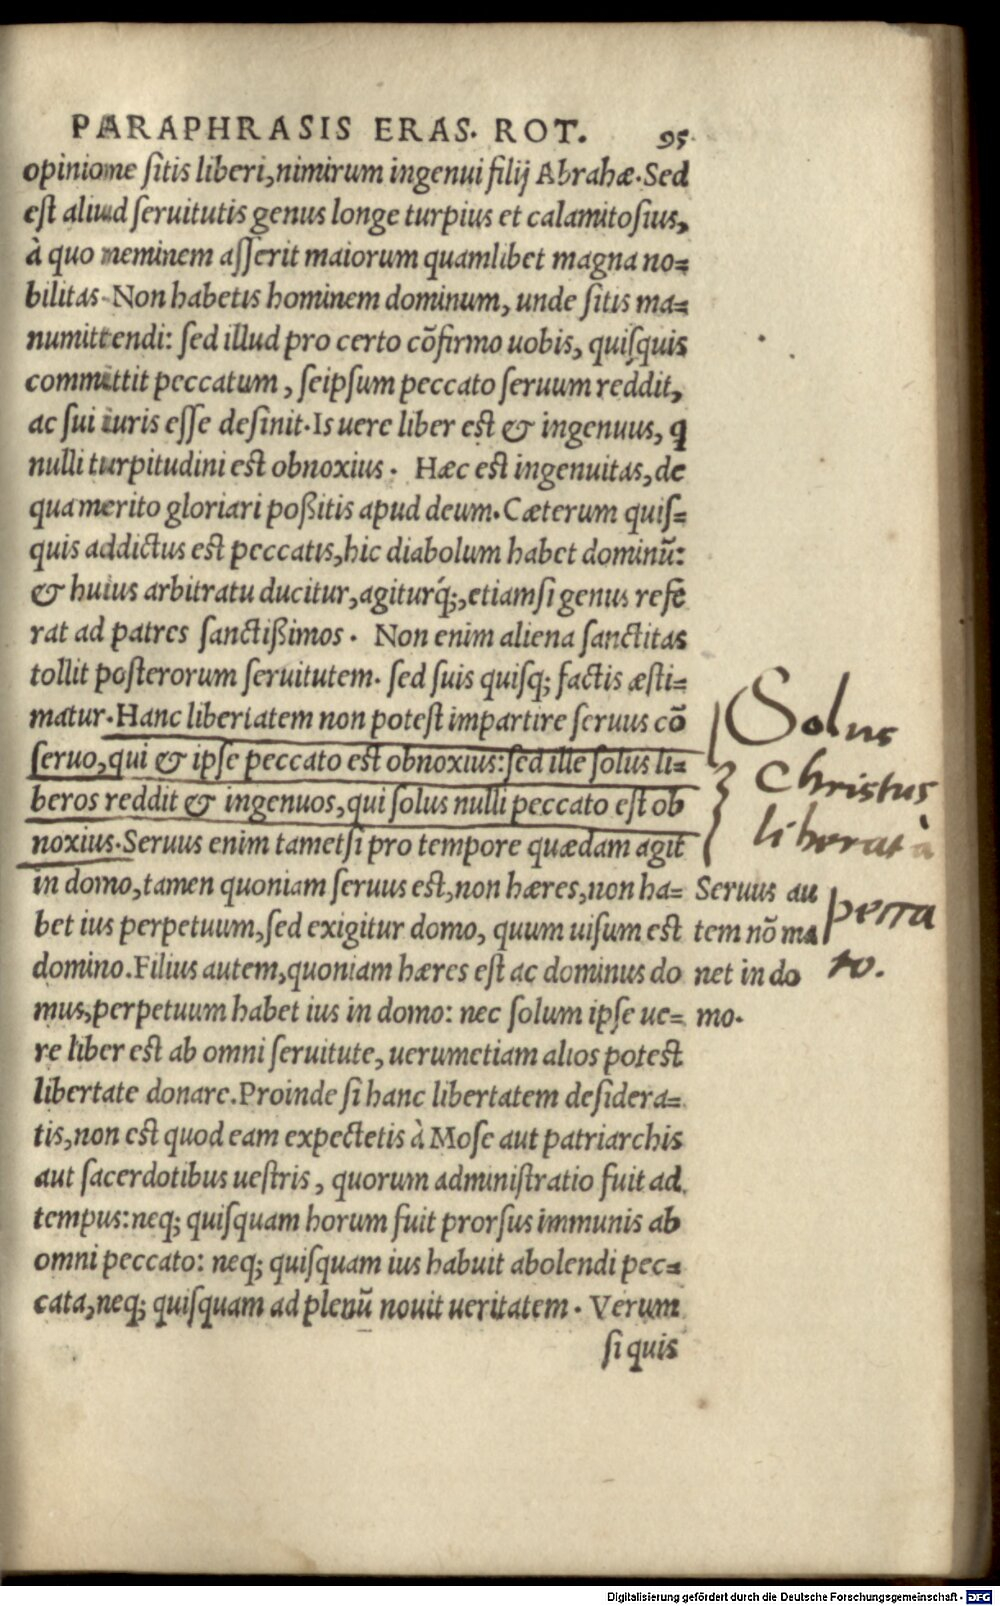 PARAPHRASIS ERAS. ROT. 95
opinione sitis liberi, nimirum ingenui filij Abrahæ. Sed
est aliud seruitutis genus longe turpius et calamitosius,
à quo neminem asserit maiorum quamlibet magna no=
bilitas. Non habetis hominem dominum, unde sitis ma=
numittendi: sed illud pro certo cõfirmo uobis, quisquis
committit peccatum, seipsum peccato seruum reddit,
ac sui iuris esse desinit. Is uere liber est & ingenuus, q
nulli turpitudini est obnoxius. Hæc est ingenuitas, de
qua merito gloriari poßitis apud deum. Cæterum quis=
quis addictus est peccatis, hic diabolum habet dominũ:
& huius arbitratu ducitur, agiturq́;, etiamsi genus refe
rat ad patres sanctißimos. Non enim aliena sanctitas
tollit posterorum seruitutem. sed suis quisq; factis æsti=
matur. Hanc libertatem non potest impartire seruus cõ
seruo, qui & ipse peccato est obnoxius: sed ille solus li=
beros reddit & ingenuos, qui solus nulli peccato est ob
noxius. Seruus enim tametsi pro tempore quædam agit
in domo, tamen quoniam seruus est, non hæres, non ha=
bet ius perpetuum, sed exigitur domo, quum uisum est
domino. Filius autem, quoniam hæres est ac dominus do
mus, perpetuum habet ius in domo: nec solum ipse ue=
re liber est ab omni seruitute, uerumetiam alios potest
libertate donare. Proinde si hanc libertatem desidera=
tis, non est quod eam expectetis à Mose aut patriarchis
aut sacerdotibus uestris, quorum administratio fuit ad
tempus: neq; quisquam horum fuit prorsus immunis ab
omni peccato: neq; quisquam ius habuit abolendi pec=
cata, neq; quisquam ad plenũ nouit ueritatem. Verum
si quis
Solus
Christus
liberat à
pecca
to.
Seruus au
tem nõ ma
net in do
mo.
Digitalisierung gefördert durch die Deutsche Forschungsgemeinschaft - DFG